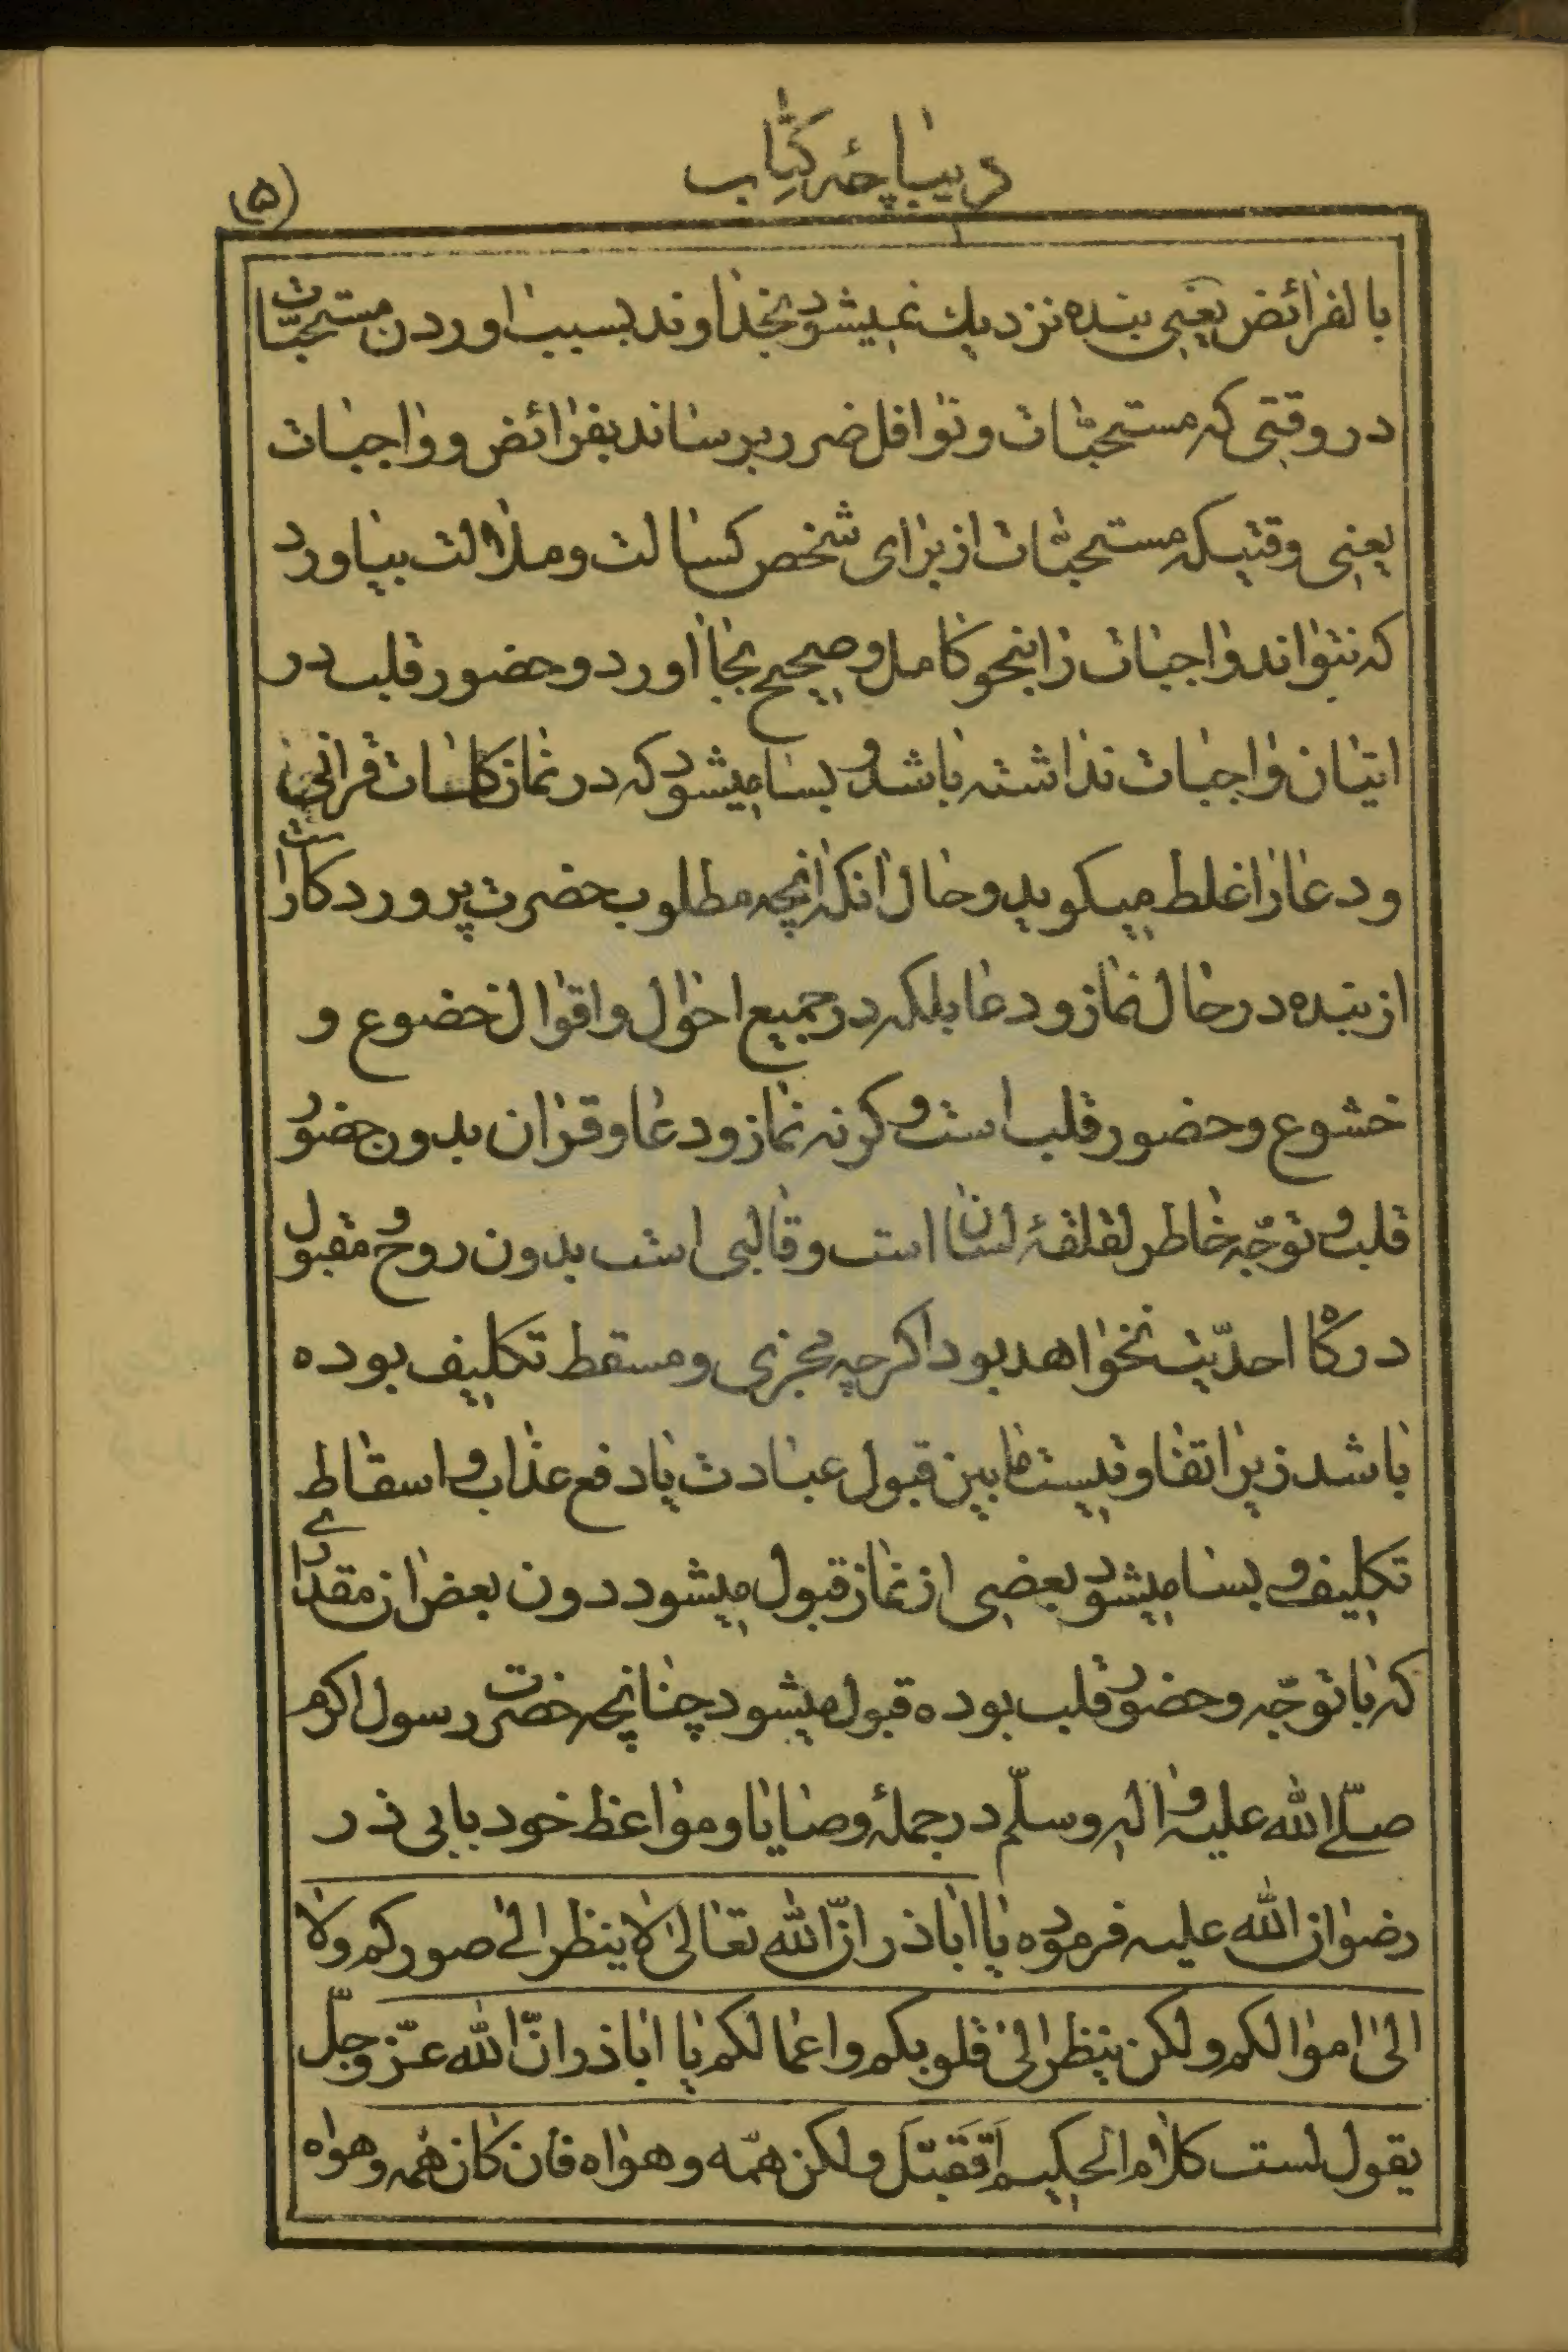 دیباچهٔ کتاب
(۵)
بالفرائض یعنی بنده نزدیك نمیشود بخداوند بسبب اوردن مستحبّات
در وقتی که مستحبّات و نوافل ضرر برساند بفرائض و واجبات
یعنی وقتیکه مستحبّات از برای شخص کسالت و ملالت بیاورد
که نتواند واجبات را بنحو کامل و صحیح بجا اورد و حضور قلب در
اتیان واجبات نداشته باشد و بسا میشود که در نماز کلمات قرانی
و دعا را غلط میکوید و حال انکه انچه مطلوب حضرت پروردکار است
از بنده در حال نماز و دعا بلکه در جمیع احوال و اقوال خضوع و
خشوع و حضور قلب است و کرنه نماز و دعا و قران بدون حضور
قلب و توجّه خاطر لقلقهٔ لسان است و قالبی است بدون روح و مقبول
درکاه احدّیت نخواهد بود اکرچه مجزی و مسقط تکلیف بوده
باشد زیرا تفاوتیست ما بین قبول عبادت یا دفع عذاب و اسقاط
تکلیف و بسا میشود بعضی از نماز قبول میشود دون بعض از مقداری
که با توجّه و حضور قلب بوده قبول میشود چنانچه حضرت رسول اکرم
صلّی الله علیه و اله و سلّم در جملهٔ وصایا و مواعظ خود بابی ذر
رضوان الله علیه فرموده یا اباذر انّ الله تعالی لا ینظر الی صورکم ولا
الی اموالکم ولکن ینظر الی قلوبکم و اعمالکم یا اباذر انّ الله عزّ وجلّ
یقول لست کلام الحکیم اَتَقَبَّلَ ولکن همّه و هواه فان کان همّه و هواه